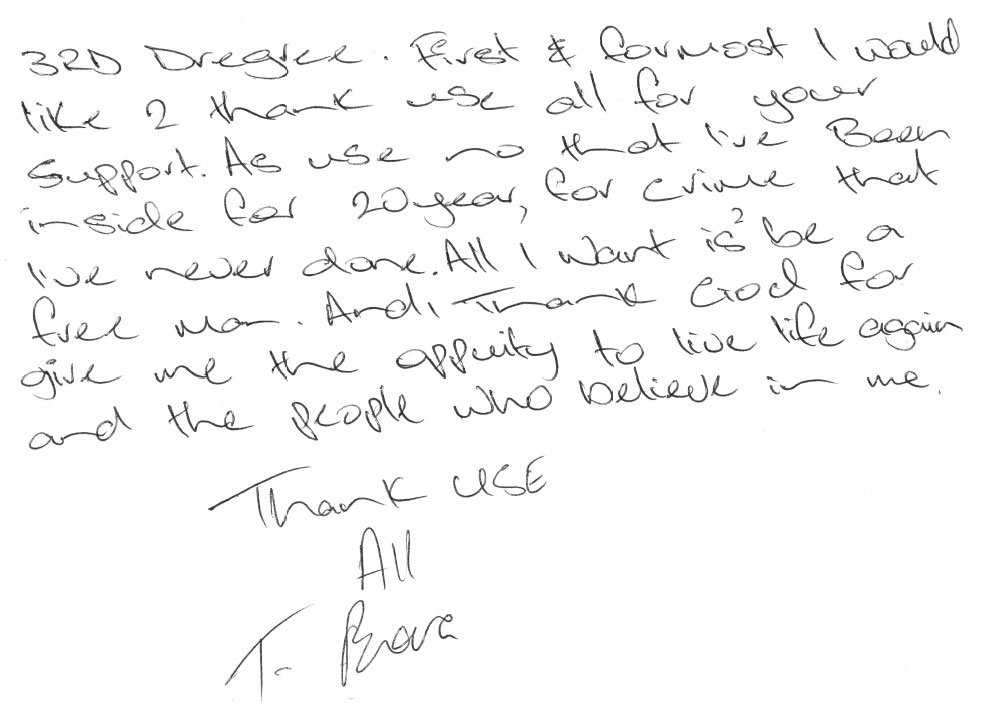 3RD Dregree. First & formost I would
like 2 thank use all for your
support. As use no that I've Been
inside for 20 year, for crime that
I've never done. All I want is 2 be a
free man. And, Thank God for
give me the oppuity to live life again
and the people who believe in me.
Thank USE
All
T.